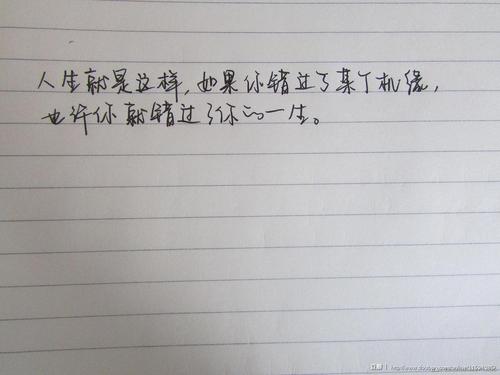 人生就是这样，如果你错过了某个机缘，
也许你就错过了你的一生。